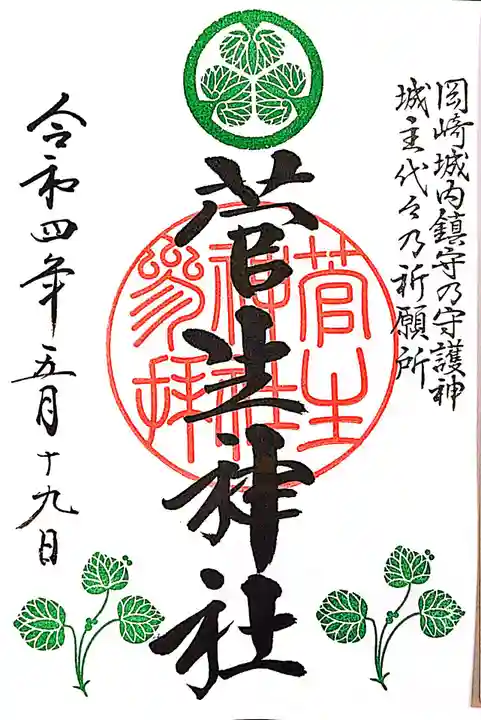 岡崎城内鎮守乃守護神
城主代々乃祈願所
菅生神社
菅生
神社
参拝
令和四年五月十九日